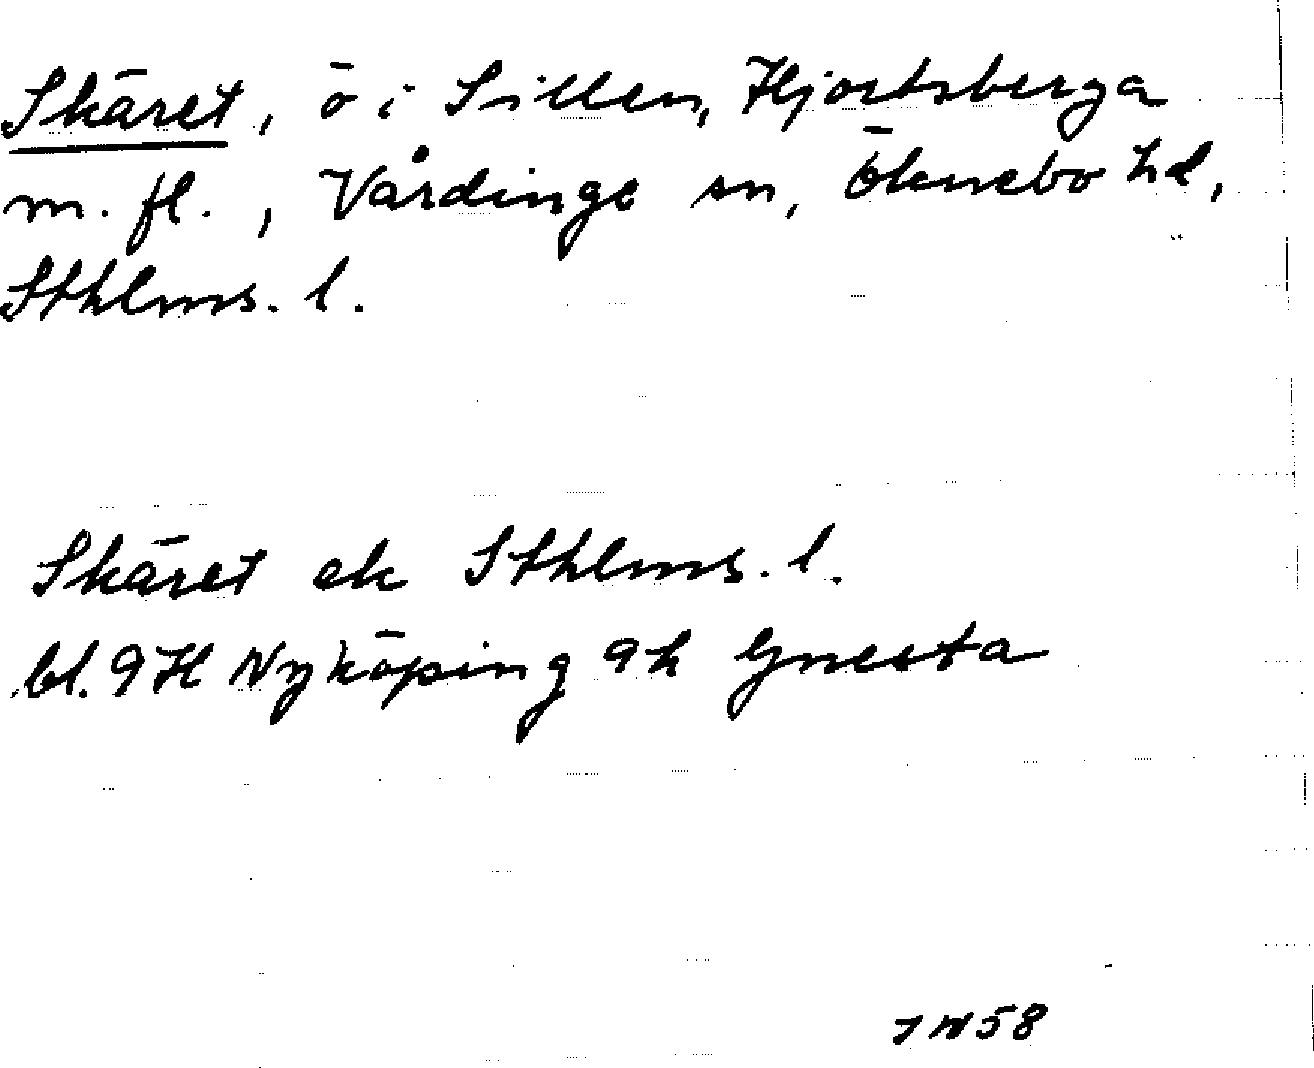 Skäret, ö i Sillen, Hjortsberga
m. fl., Vårdinge sn, Öknebo hd,
Sthlms. l.
Skäret ek Sthlms. l.
bl. 9H Nyköping 9h Gnesta
58